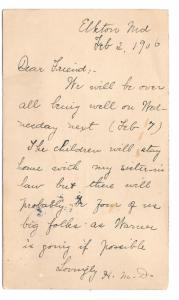 Elkton Md
Feb 2, 1906
Dear Friend,-
We will be over
all being well on Wed-
nesday next (Feb 7)
The children will stay
home with my sister-in
law but there will
probably be four of us
big folks as Warner
is going if possible
Lovingly H. M. D.